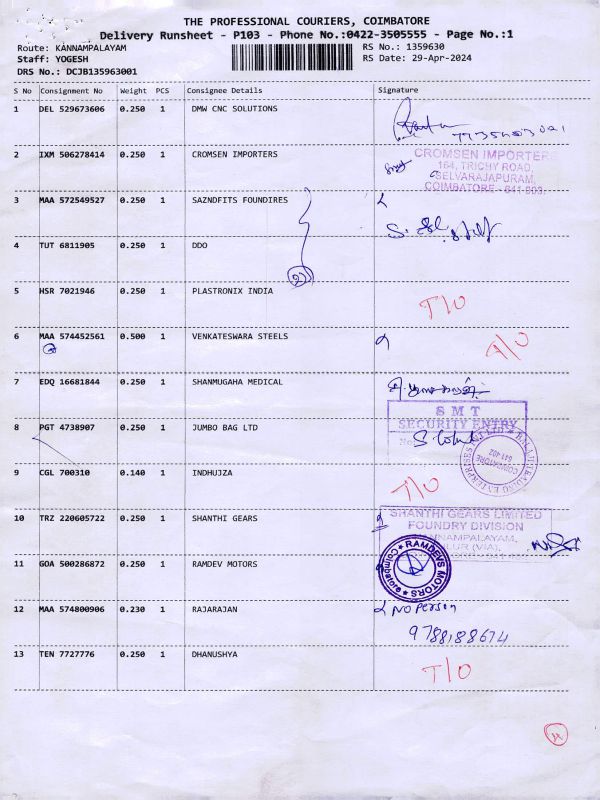 THE PROFESSIONAL COURIERS, COIMBATORE
Delivery Runsheet - P103 - Phone No.:0422-3505555 - Page No.:1
Route: KANNAMPALAYAM
RS No.: 1359630
Staff: YOGESH
RS Date: 29-Apr-2024
DRS No.: DCJB135963001
S No Consignment No Weight PCS Consignee Details Signature
1 DEL 529673606 0.250 1 DMW CNC SOLUTIONS
2 IXM 506278414 0.250 1 CROMSEN IMPORTERS
CROMSEN IMPORTERS
164, TRICHY ROAD,
SELVARAJAPURAM,
COIMBATORE - 641 103.
3 MAA 572549527 0.250 1 SAZNDFITS FOUNDIRES
4 TUT 6811905 0.250 1 DDO
5 HSR 7021946 0.250 1 PLASTRONIX INDIA
T/O
6 MAA 574452561 0.500 1 VENKATESWARA STEELS
7 EDQ 16681844 0.250 1 SHANMUGAHA MEDICAL
8 PGT 4738907 0.250 1 JUMBO BAG LTD
SMT
SECURITY ENTRY
COIMBATORE
641 402
9 CGL 700310 0.140 1 INDHUJZA
T/O
10 TRZ 220605722 0.250 1 SHANTHI GEARS
SHANTHI GEARS LIMITED
FOUNDRY DIVISION
KANNAMPALAYAM,
SULUR (VIA),
11 GOA 500286872 0.250 1 RAMDEV MOTORS
RAMDEVS MOTORS
Coimbatore
12 MAA 574800906 0.230 1 RAJARAJAN
No person
9788188674
13 TEN 7727776 0.250 1 DHANUSHYA
T/O